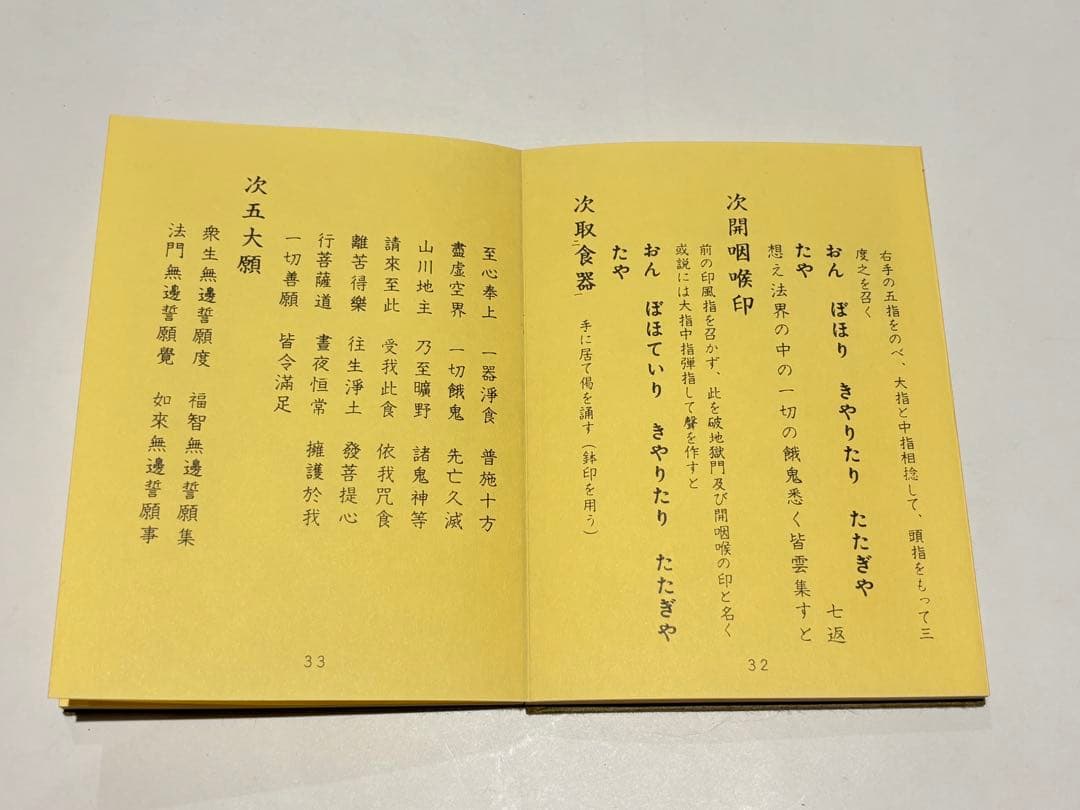 右手の五指をのべ、大指と中指相捻して、頭指をもって三
度之を召く
おん ぼほり きやりたり たたぎや
たや 七返
想え法界の中の一切の餓鬼悉く皆雲集すと
次開咽喉印
前の印風指を召かず、此を破地獄門及び開咽喉の印と名く
或説には大指中指弾指して聲を作すと
おん ぼほていり きやりたり たたぎや
たや
次取二食器一 手に居て偈を誦す（鉢印を用う）
32
至心奉上 一器淨食 普施十方
盡虛空界 一切餓鬼 先亡久滅
山川地主 乃至曠野 諸鬼神等
請來至此 受我此食 依我咒食
離苦得樂 往生淨土 發菩提心
行菩薩道 晝夜恒常 擁護於我
一切善願 皆令滿足
次五大願
衆生無邊誓願度 福智無邊誓願集
法門無邊誓願覺 如來無邊誓願事
33